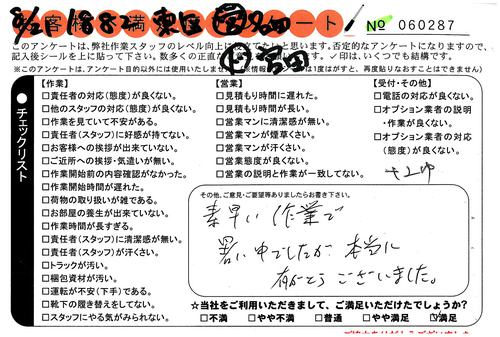 お客様満 ート
No 060287
このアンケートは、弊社作業スタッフのレベル向上に役立てたいと思います。否定的なアンケートになりますので、
記入後シールを上に貼って下さい。✓印は、いくつでも結構です。
※このアンケートは、アンケート目的以外には使用いたしません。
●チェックリスト
【作業】
□責任者の対応(態度)が良くない。
□他のスタッフの対応(態度)が良くない。
□作業を見ていて不安がある。
□責任者(スタッフ)に好感が持てない。
□お客様への挨拶が出来ていない。
□ご近所への挨拶・気遣いが無い。
□作業開始前の内容確認がなかった。
□作業開始時間が遅れた。
□荷物の取り扱いが雑である。
□お部屋の養生が出来ていない。
□作業時間が長すぎる。
□責任者(スタッフ)に清潔感が無い。
□責任者(スタッフ)が汗くさい。
□トラックが汚い。
□梱包資材が汚い。
□運転が不安(下手)である。
□靴下の履き替えをしてない。
□スタッフにやる気がみられない。
【営業】
□見積もり時間に遅れた。
□見積もり時間が長い。
□営業マンに清潔感が無い。
□営業マンが煙草くさい。
□営業マンが汗くさい。
□営業態度が良くない。
□営業の説明と作業が一致してない。
【受付・その他】
□電話の対応が良くない。
□オプション業者の説明
・作業が良くない。
□オプション業者の対応
(態度)が良くない。
その他、ご意見・ご要望等ありましたらお書き下さい。
素早い作業で
暑い中でしたが 本当に
有がとうございました。
☆当社をご利用いただきまして、ご満足いただけたでしょうか?
□不満 □やや不満 □普通 □やや満足 ☑満足